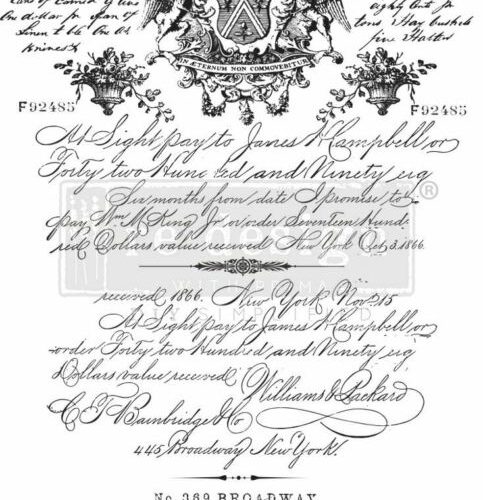 on dollar for
Linen to be
eighty
tons Hay bushels
five Halters
IN ÆTERNUM NON COMMOVEBITUR
F92485
F92485
At Sight pay to James W Campbell or
Forty two Hundred and Ninety eig
Six months from date I promise to
pay Wm M King Jr or order Seventeen Hund-
red Dollars value received New York Oct 3. 1866.
redesign®
WITH PRIMA
BY SIMPLIFIED
received 1866. New York Nov 15
At Sight pay to James W Campbell or
order Forty two Hundred and Ninety eig
Dollars value received
Williams & Packard
C T Bambridge & Co
445 Broadway New York.
No. 369 BROADWAY